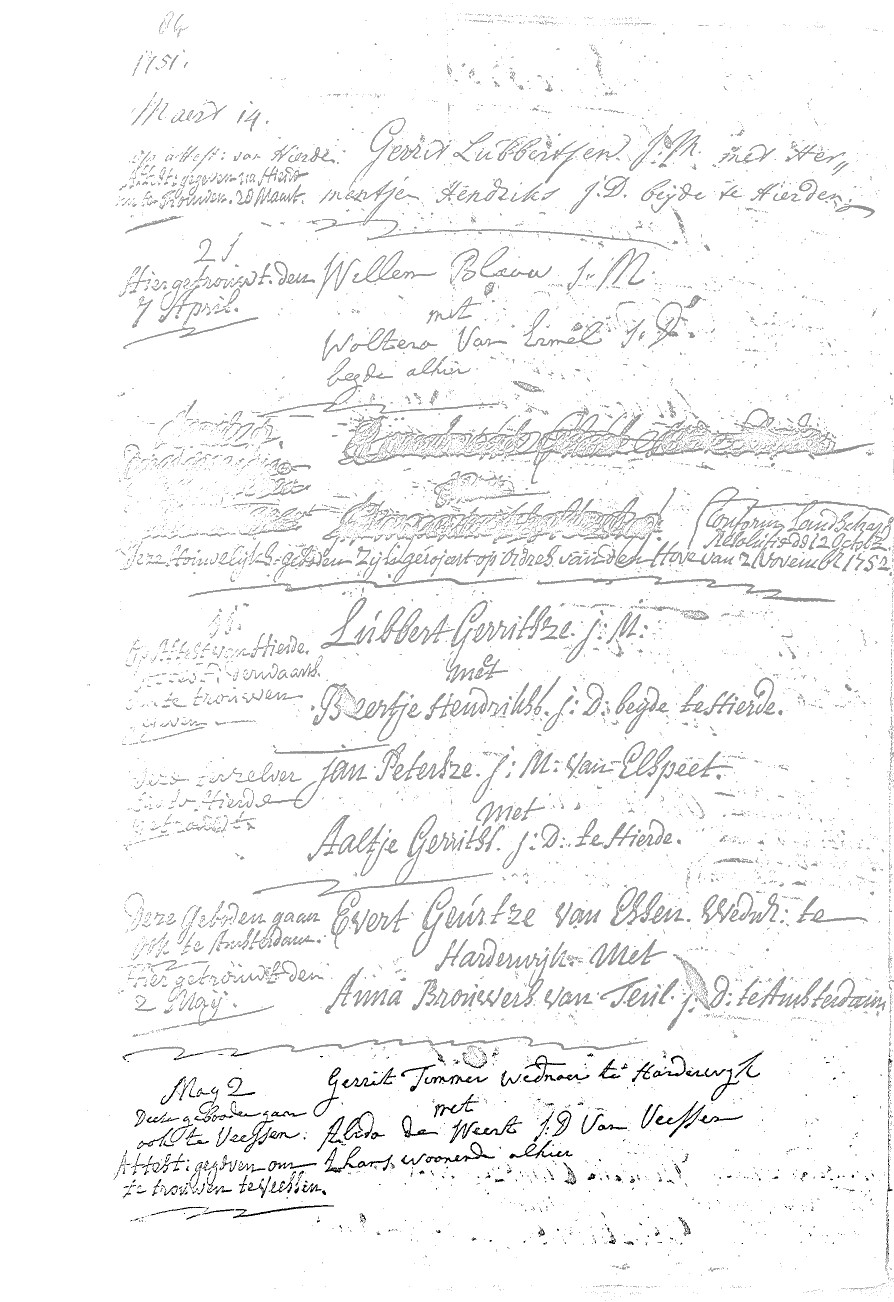 84
1751.
Maert 14.
op attest: van Hierde. Gerrit Lubbertsen J.M. met Her„
Attest: gegeven
om te Trouwen. 28 Maart. mentje Hendriks J.D. beijde te Hierden.
21
Hier getrouwt den Willem Blaau J.M.
7 April.
met
Woltera Van Ermel J.D.
beyde alhier
Conform Landschaps
Resolutie d: 12 Octob:
Deze Houwelijks-geboden Zijn geroijeert op ordres van den Hove van 2 Novemb: 1752
Lubbert Gerritsze. j: M:
Op Attest van Hierde.
met
om te trouwen
gegeven
Beertje Hendriks. j: D: beyde te Hierde.
Jan Petersze. j: M: van Elspeet.
Hierde
getrouwt.
Met
Aaltje Gerrits. j: D: te Hierde.
Deze Geboden gaan Evert Geurtze van Essen. Wedn^r: te
ook te Amsterdam. Harderwyk. Met
Hier getrouwt den
2 May. Anna Brouwers van Teuil. j: D: te Amsterdam
May 2 Gerrit Timmer Wednaer te Harderwyk
Deese gebooden gaan met
ook te Veessen: Alida de Weert J:D Van Veessen
Attest: gegeven om Thans woonende alhier
te trouwen te Veessen.